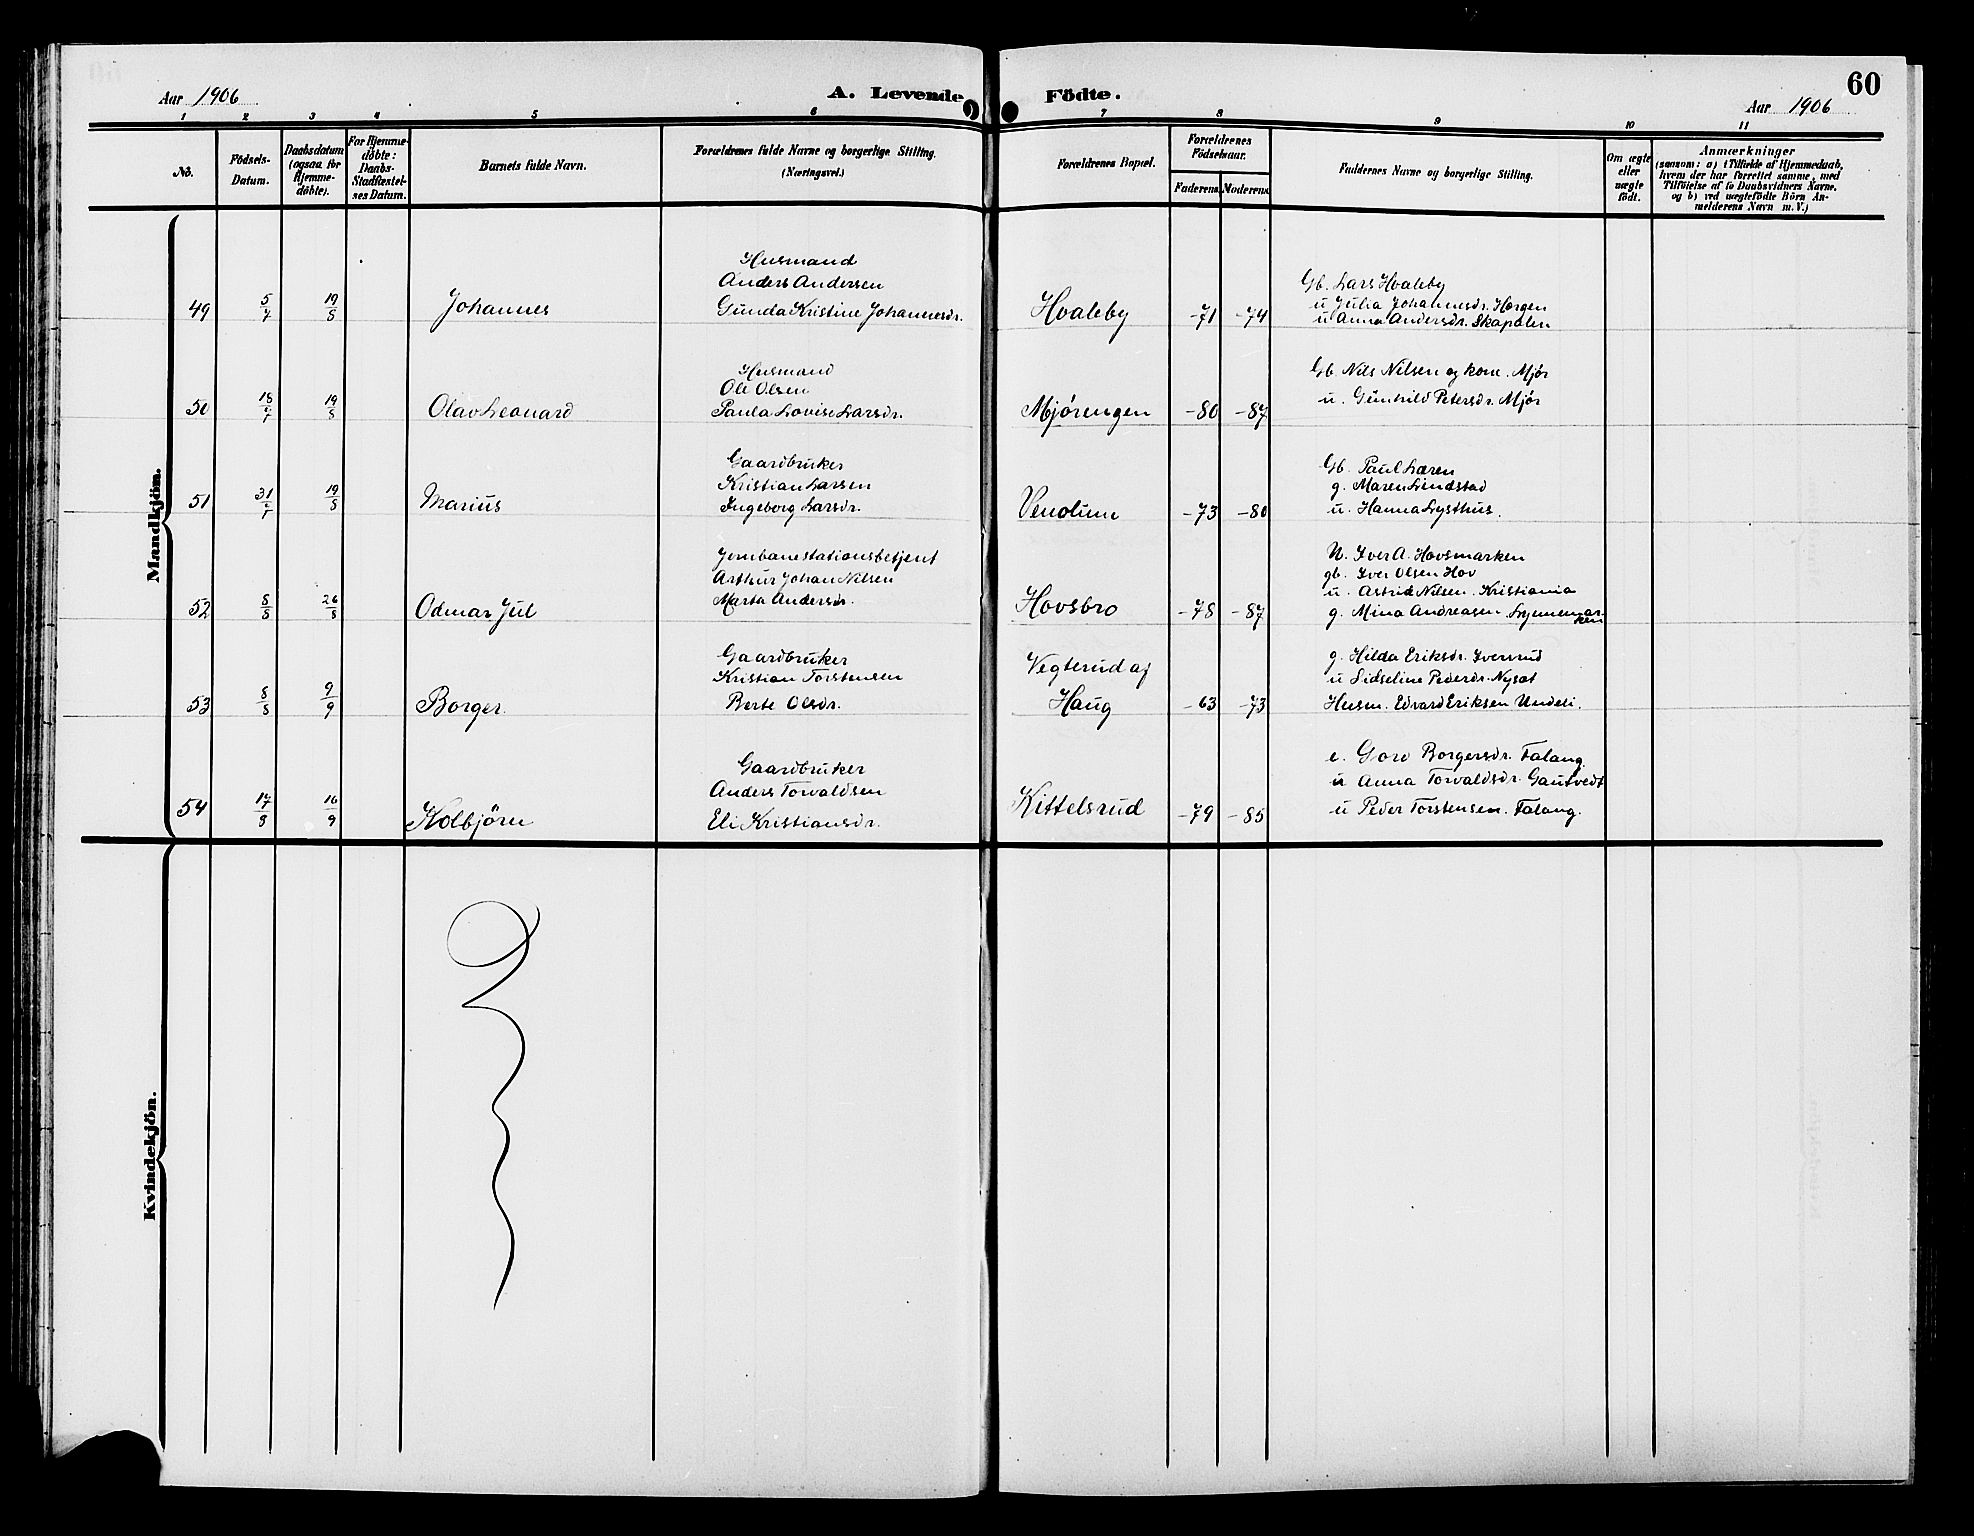 60
Aar 1906
A. Levende Födte.
Aar 1906
1 2 3 4 5 6 7 8 9 10 11
No.
Födsels-
Datum.
Daabsdatum
(ogsaa for
Hjemme-
döbte).
For Hjemme-
döbte:
Daabs-
Stadfæstel-
ses Datum.
Barnets fulde Navn.
Forældrenes fulde Navne og borgerlige Stilling.
(Næringsvei.)
Forældrenes Bopæl.
Forældrenes
Födselsaar.
Faderens Moderens
Faddernes Navne og borgerlige Stilling.
Om ægte
eller
uægte
födt.
Anmærkninger
(saasom: a) i Tilfælde af Hjemmedaab,
hvem der har forrettet samme, med
Tilföielse af to Daabsvidners Navne.
og b) ved uægtefödte Börn An-
melderens Navn m. V.)
Mandkjön.
49 5/7 19/8 Johannes
Husmand
Anders Andersen
Gunda Kristine Johannesdr.
Hvaleby -71 -74
Gb. Lars Hvaleby
u Julia Johannesdr. Horgen
u Anna Andersdr. Skapalen
50 18/7 19/8 Olav Leonard
Husmand
Ole Olsen
Paula Lovise Larsdr.
Mjørengen -80 -87
Gb. Nils Nilsen og kone. Mjør
u. Gunhild Petersdr. Mjør
51 31/5 19/8 Marius
Gaardbruker
Kristian Larsen
Ingeborg Larsdr.
Venolum -73 -80
Gb. Paul Læren
g. Maren Lindstad
u. Hanna Lysthus.
52 8/8 26/8 Odmar Jul
Jernbanestationsbetjent
Arthur Johan Nilsen
Marta Andersdr.
Hovsbro -78 -87
N. Iver A. Hovsmarken
gb. Iver Olsen Hov
u. Astrid Nilsen. Kristiania
g. Mina Andreasen. Lynnemar-
ken
53 8/8 9/9 Borger.
Gaardbruker
Kristian Torstensen
Berte Olsdr.
Vegterud af
Haug -63 -73
g. Hilda Eriksdr. Iverrud
u Sidseline Pedersdr. Nysæt
Husm. Edvard Eriksen Undeli.
54 17/8 16/9 Kolbjörn
Gaardbruker
Anders Torvaldsen
Eli Kristiansdr.
Kittelsrud -79 -85
e. Goro Borgersdr. Falang.
u Anna Torvaldsdr. Gautvedt
u Peder Torstensen. Falang.
Kvindekjön.